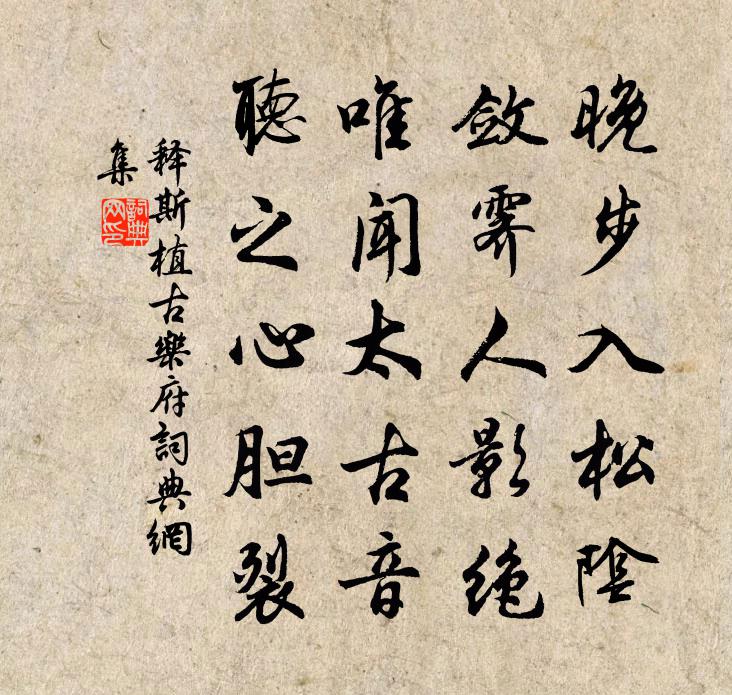 晚步入松陰
斂霽人影絶
唯聞太古音
聽之心胆裂
释斯植古樂府詞典網
集
詞典
网印